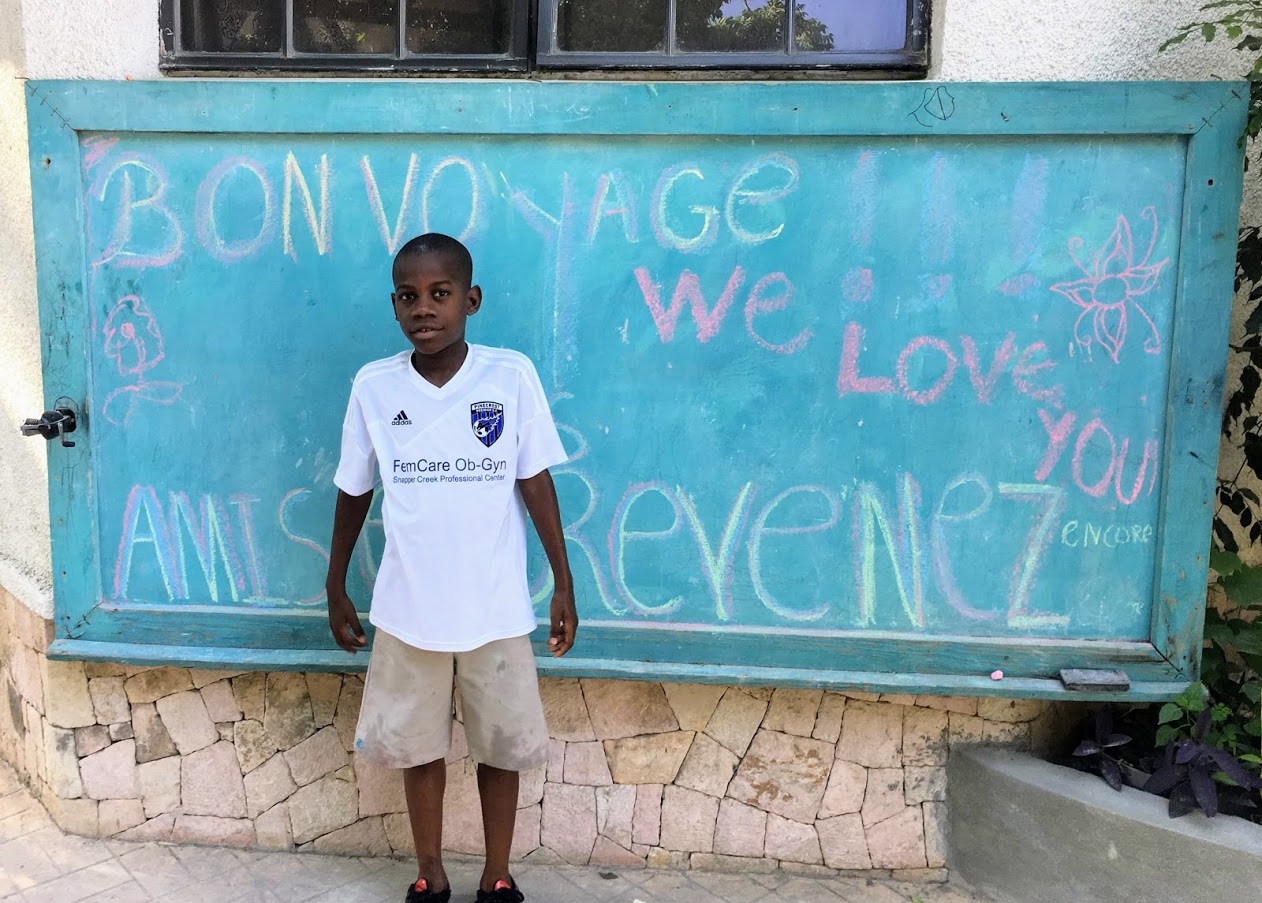 BON VOYAGe !!!
We
LOVe
YOU!
AMISe REVENEZ
eNCORe
adidas
PINECREST
FemCare Ob-Gyn
Snapper Creek Professional Center